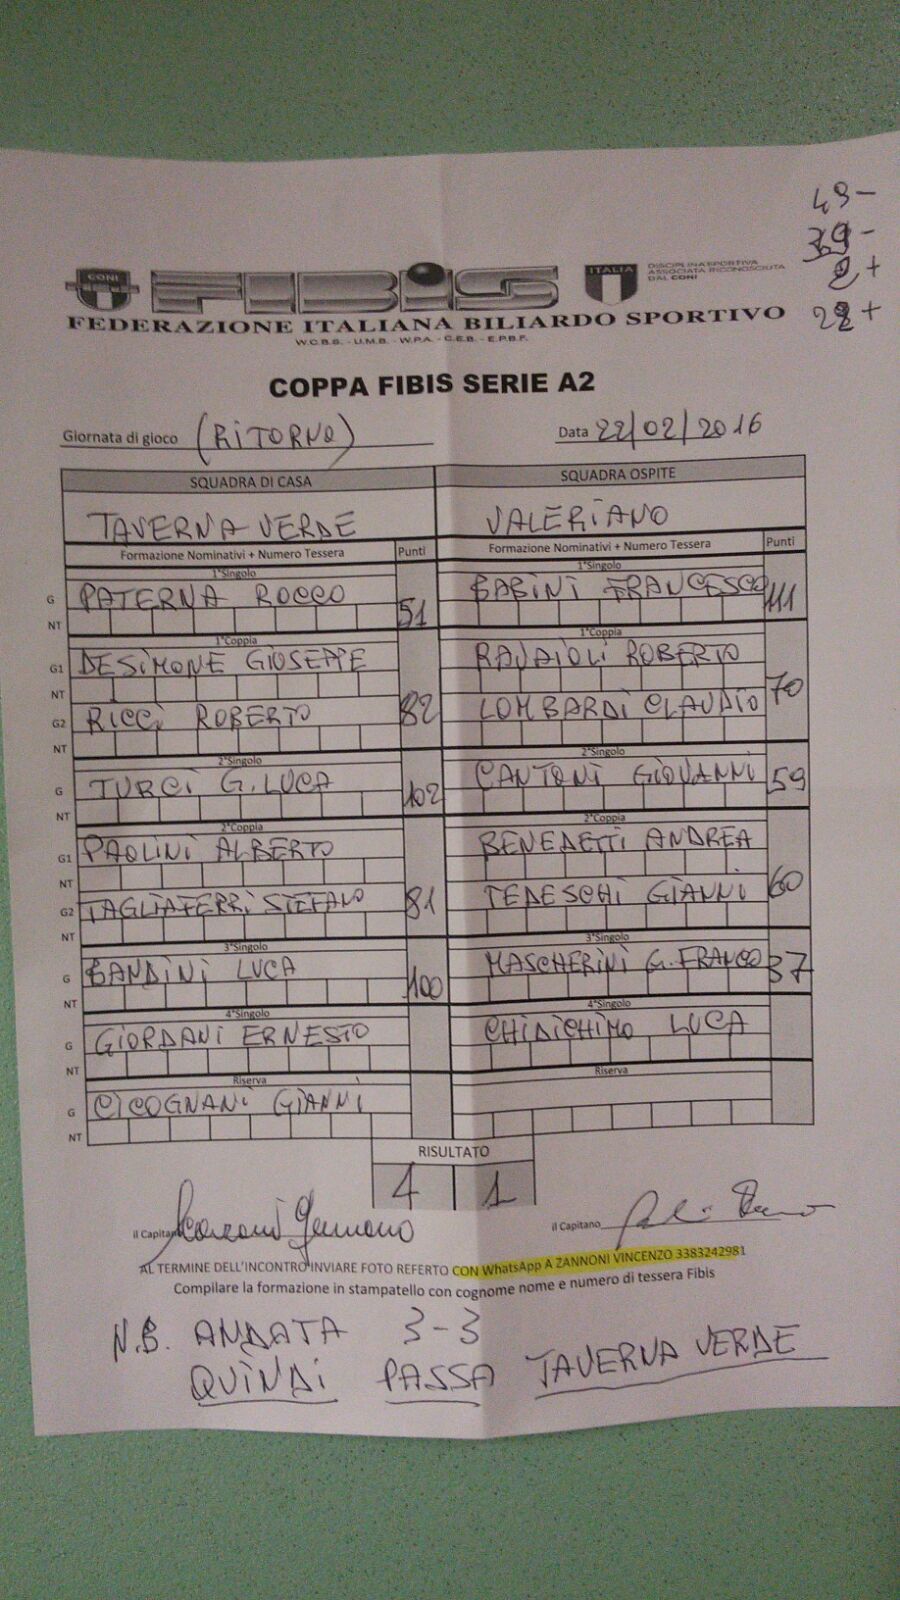 49-
39-
2+
22+
CONI
FIBiS
ITALIA
DISCIPLINA SPORTIVA
ASSOCIATA RICONOSCIUTA
DAL CONI
FEDERAZIONE ITALIANA BILIARDO SPORTIVO
W.C.B.S. - U.M.B. - W.P.A. - C.E.B. - E.P.B.F.
COPPA FIBIS SERIE A2
Giornata di gioco (RITORNO) Data 22/02/2016
SQUADRA DI CASA SQUADRA OSPITE
TAVERNA VERDE VALERIANO
Formazione Nominativi + Numero Tessera Punti Formazione Nominativi + Numero Tessera Punti
1°Singolo 1°Singolo
G PATERNA ROCCO 51 BABINI FRANCESCO 111
NT
1°Coppia 1°Coppia
G1 DESIMONE GIOSEPPE RAVAIOLI ROBERTO
NT
G2 RICCI ROBERTO 82 LOMBARDI CLAUDIO 70
NT
2°Singolo 2°Singolo
G TURCI G.LUCA 102 CANTONI GIOVANNI 59
NT
2°Coppia 2°Coppia
G1 PAOLINI ALBERTO BENEDETTI ANDREA
NT
G2 TAGLIAFERRI STEFANO 81 TEDESCHI GIANNI 60
NT
3°Singolo 3°Singolo
G BANDINI LUCA 100 MASCHERINI G.FRANCO 37
NT
4°Singolo 4°Singolo
G GIORDANI ERNESTO CHIDICHIMO LUCA
NT
Riserva Riserva
G CICOGNANI GIANNI
NT
RISULTATO
4 1
il Capitano il Capitano
AL TERMINE DELL'INCONTRO INVIARE FOTO REFERTO CON WhatsApp A ZANNONI VINCENZO 3383242981
Compilare la formazione in stampatello con cognome nome e numero di tessera Fibis
N.B. ANDATA 3-3
QUINDI PASSA TAVERNA VERDE